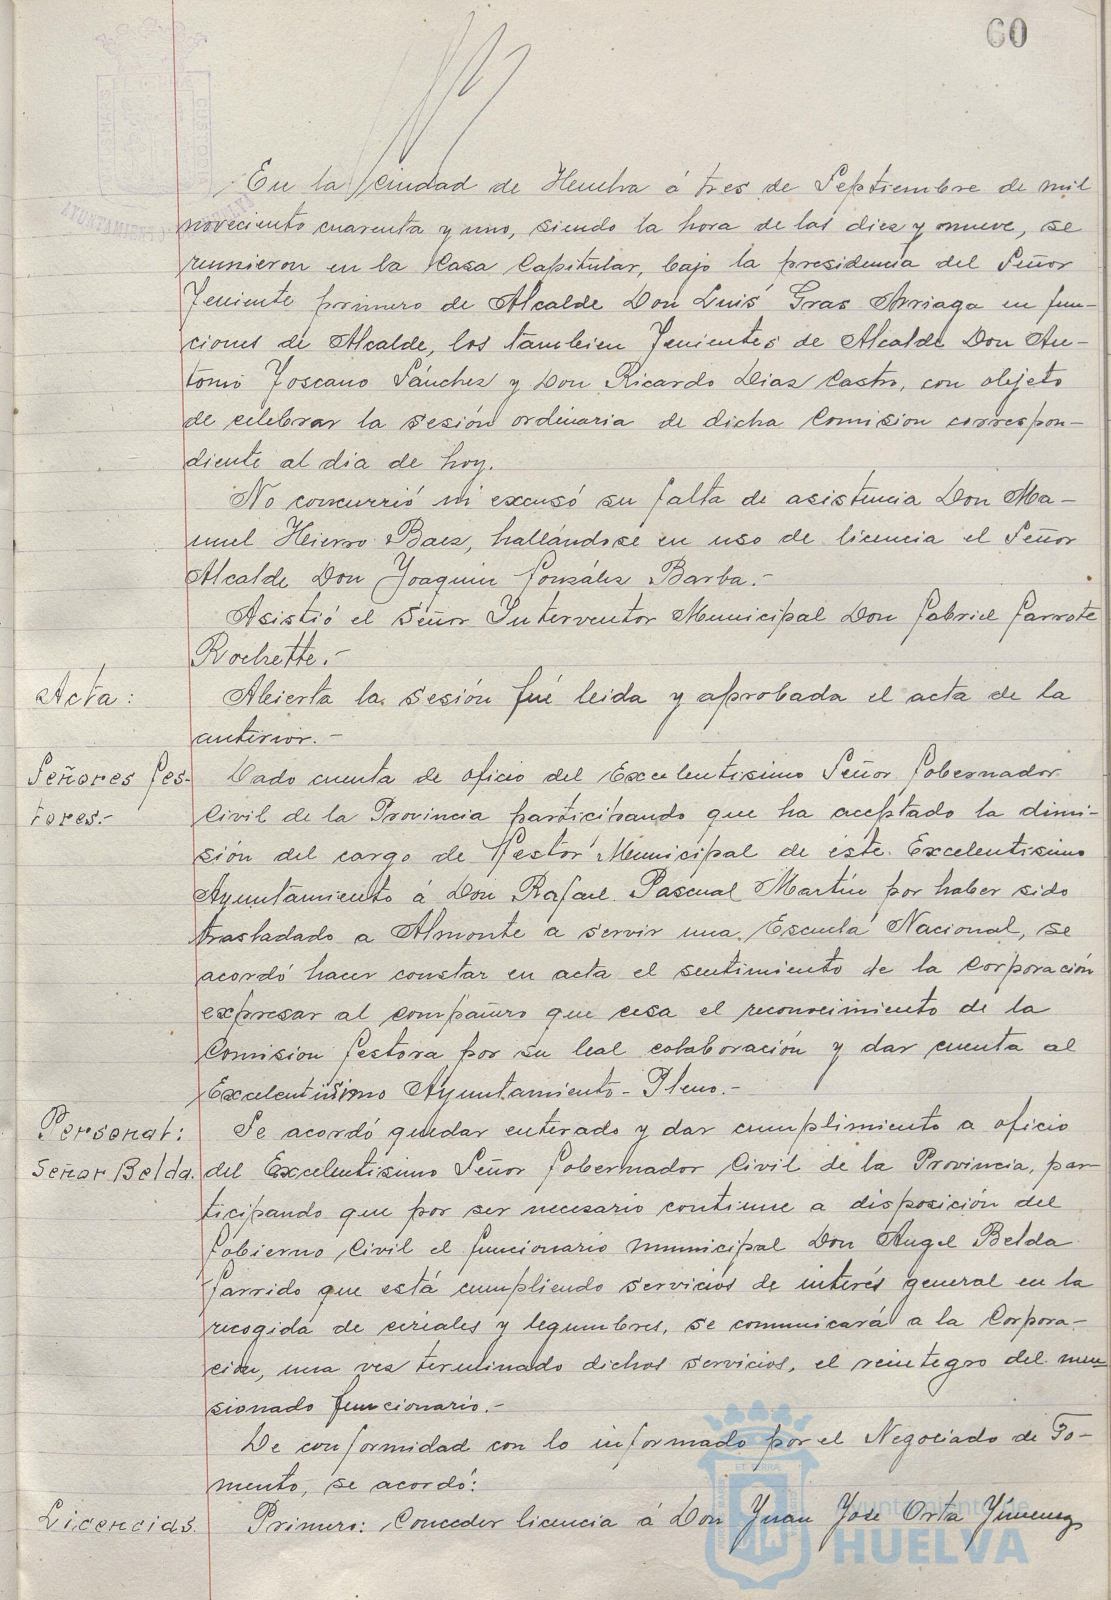 60
En la ciudad de Huelva á tres de Septiembre de mil
noveciento cuarenta y uno, siendo la hora de las diez y nueve, se
reunieron en la Casa Capitular, bajo la presidencia del Señor
Teniente primero de Alcalde Don Luis Gras Arriaga en fun-
ciones de Alcalde, los tambien Tenientes de Alcalde Don An-
tonio Toscano Sánchez y Don Ricardo Diaz Castro, con objeto
de celebrar la sesión ordinaria de dicha Comision correspon-
diente al dia de hoy.
No concurrió ni excusó su falta de asistencia Don Ma-
nuel Hierro Baez, hallándose en uso de licencia el Señor
Alcalde Don Joaquin González Barba.-
Asistió el Señor Interventor Municipal Don Gabriel Garrote
Rochette.-
Acta: Abierta la sesión fué leida y aprobada el acta de la
anterior.-
Señores Ges- Dado cuenta de oficio del Excelentisimo Señor Gobernador
tores.- Civil de la Provincia participando que ha aceptado la dimi-
sión del cargo de Gestor Municipal de éste Excelentisimo
Ayuntamiento á Don Rafael Pascual Martín por haber sido
trasladado a Almonte a servir una Escuela Nacional, se
acordó hacer constar en acta el sentimiento de la Corporación
expresar al compañero que cesa el reconocimiento de la
Comision Gestora por su leal colaboración y dar cuenta al
Excelentisimo Ayuntamiento-Pleno.-
Personal: Se acordó quedar enterado y dar cumplimiento a oficio
Señor Belda. del Excelentisimo Señor Gobernador Civil de la Provincia, par-
ticipando que por ser necesario continue a disposición del
Gobierno Civil el funcionario municipal Don Angel Belda
Garrido que está cumpliendo servicios de interés general en la
recogida de cereales y legumbres, se comunicará a la Corpora-
ción, una vez terminado dichos servicios, el reintegro del men-
sionado funcionario.-
De conformidad con lo informado por el Negociado de Fo-
mento, se acordó:
Licencias. Primero: Conceder licencia á Don Juan José Orta Jimenez
Ayuntamiento de
HUELVA